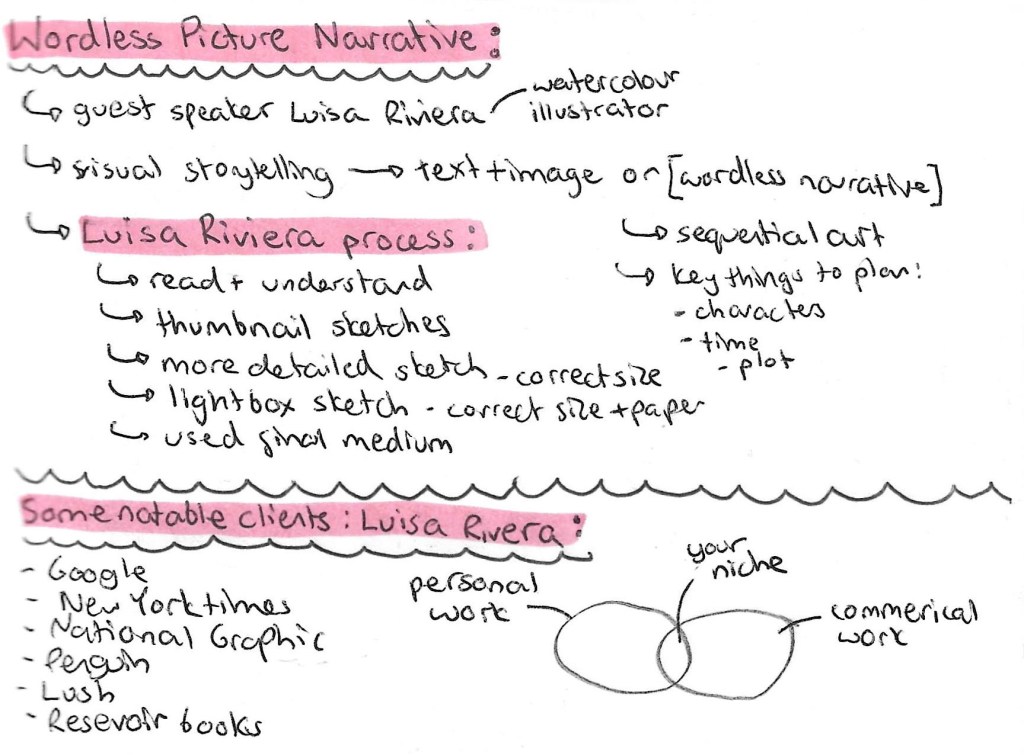 Wordless Picture Narrative:
↳ guest speaker Luisa Riviera
watercolour
illustrator
↳ visual storytelling → text + image or [wordless narrative]
↳ sequential art
↳ key things to plan:
- characters
- time
- plot
↳ Luisa Riviera process:
↳ read + understand
↳ thumbnail sketches
↳ more detailed sketch - correct size
↳ lightbox sketch - correct size + paper
↳ used final medium
Some notable clients: Luisa Rivera:
- Google
- New York times
- National Graphic
- Penguin
- Lush
- Resevoir books
personal
work
your
niche
commerical
work